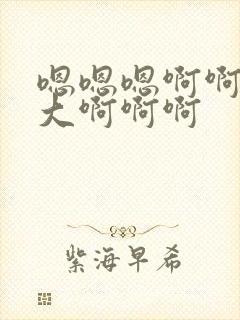 嗯嗯嗯啊啊
大啊啊啊
紫海早希